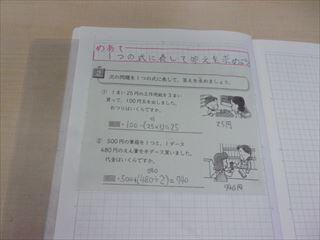 めあて
1つの式に表して答えを求めよう
次の問題を1つの式に表して、答えを求めましょう。
① 1まい25円の工作用紙を3まい
買って、100円玉を出しました。
おつりはいくらですか。
100-(25×3)=25
25円
② 500円の筆箱を1つと、1ダース
480円のえん筆を半ダース買いました。
代金はいくらですか。
500+(480÷2)=740
740円